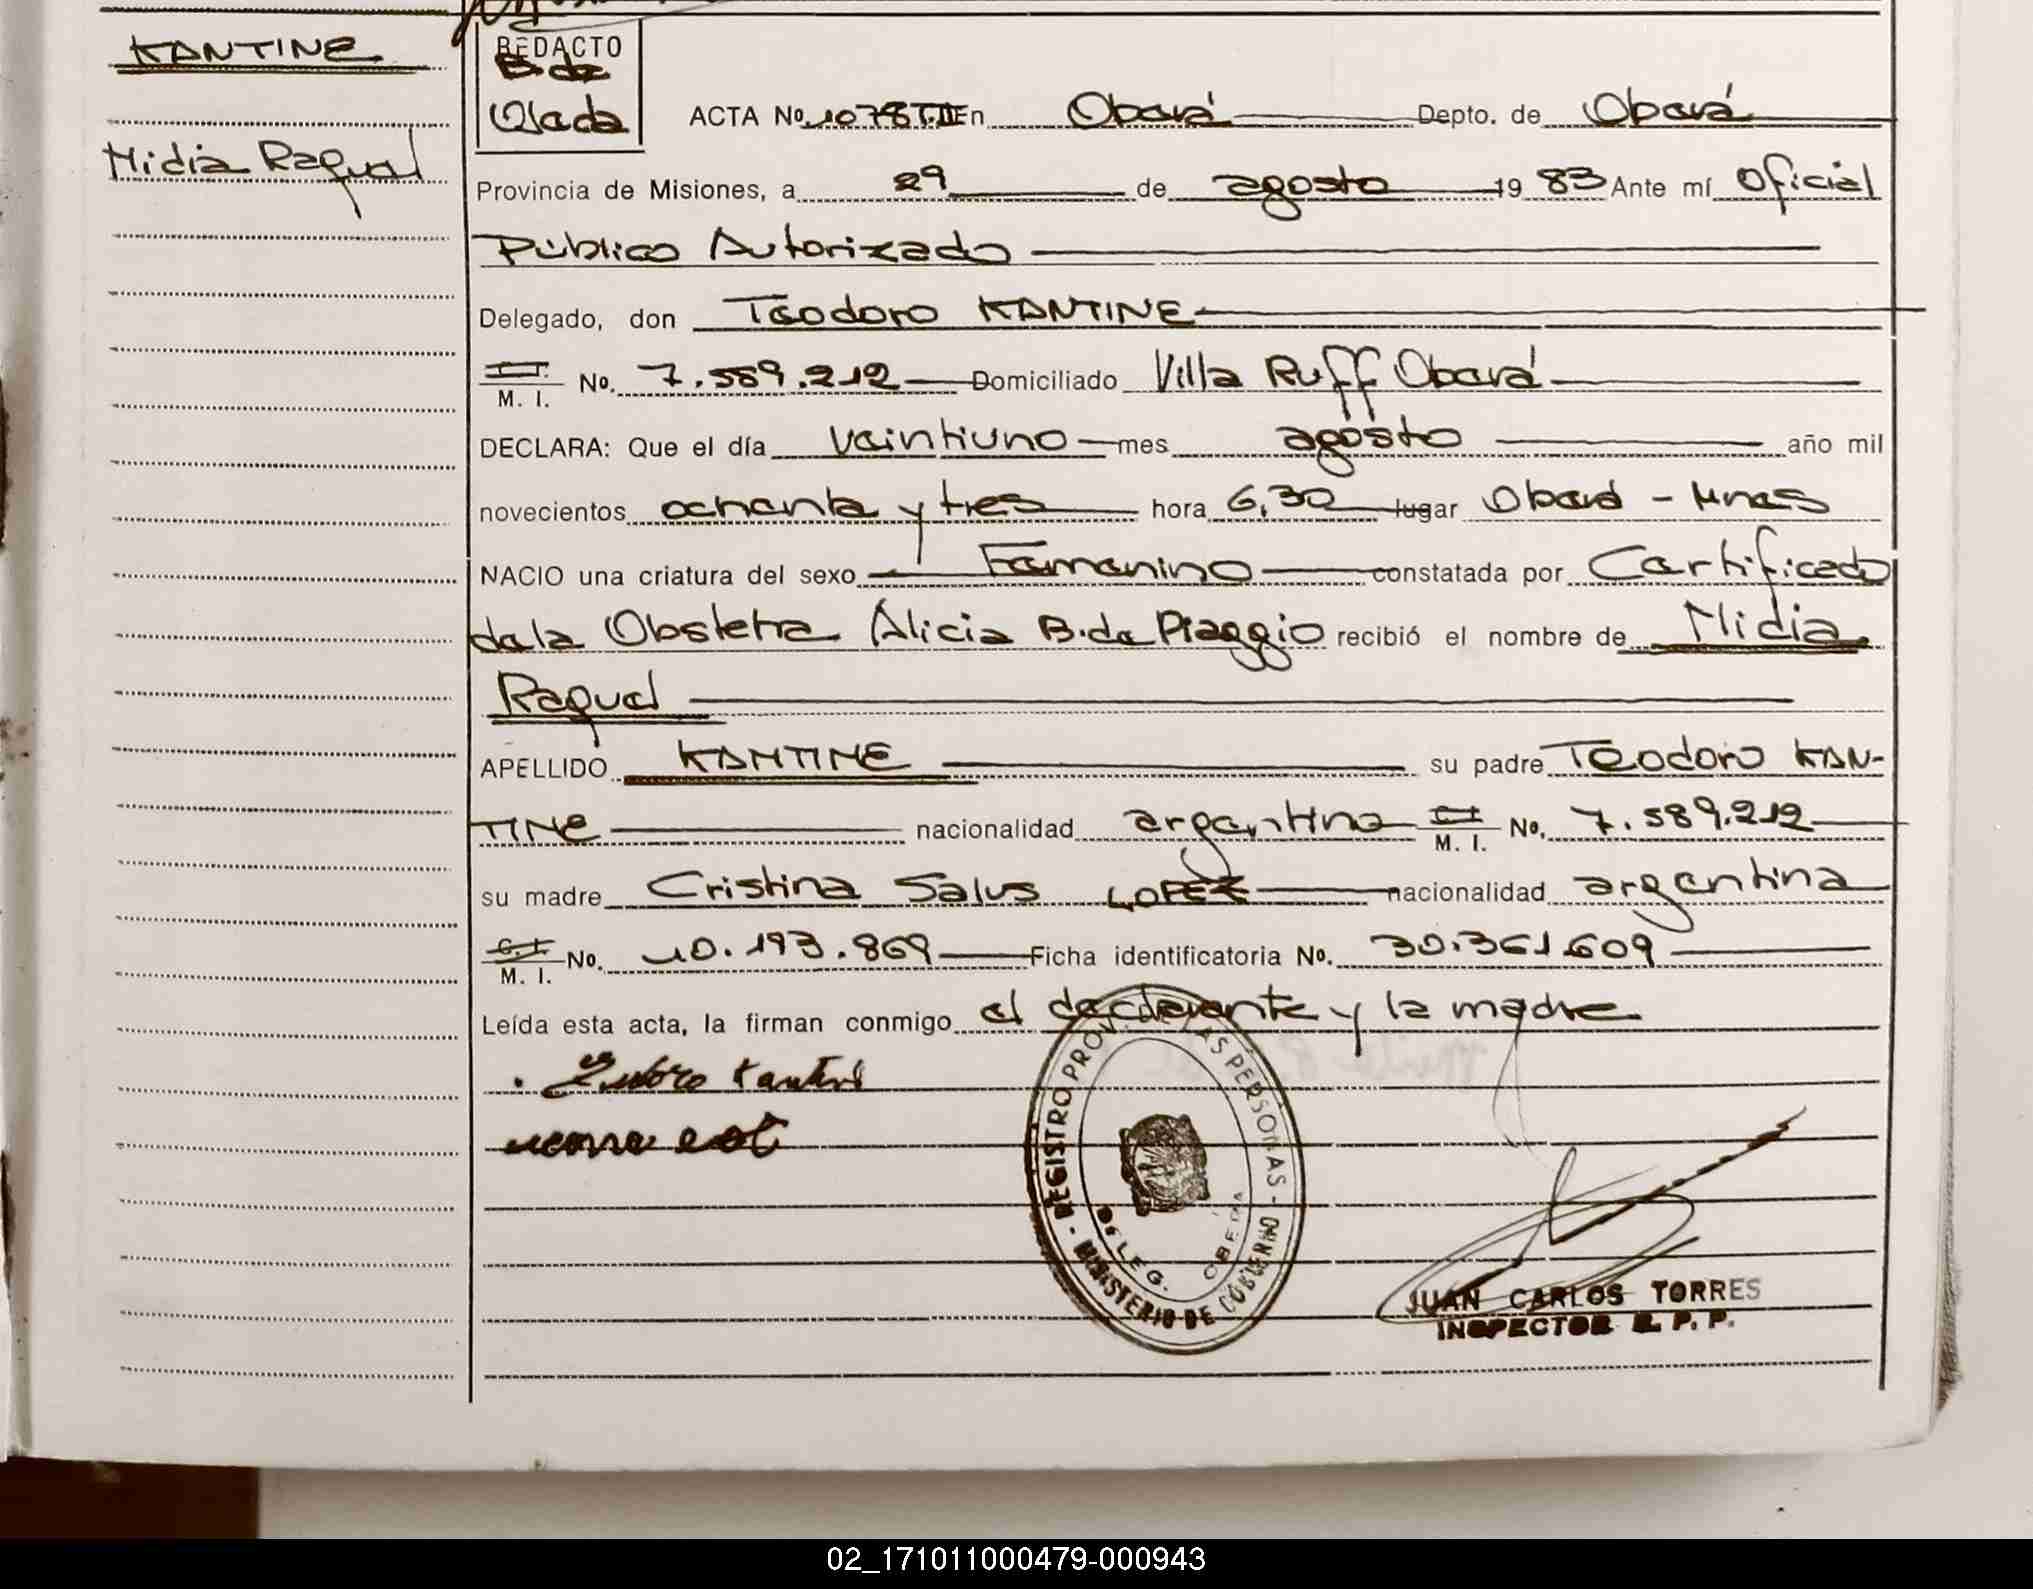 KANTINE
Nidia Raquel
REDACTO
B. de
Ojeda
ACTA No. 1078 T.III En Oberá Depto. de Oberá
Provincia de Misiones, a 29 de agosto 19 83 Ante mí Oficial
Público Autorizado
Delegado, don Teodoro KANTINE
C. I.
M. I. No. 7.589.212 Domiciliado Villa Ruff Oberá
DECLARA: Que el día veintiuno mes agosto año mil
novecientos ochenta y tres hora 6,30 lugar Oberá - Mnes
NACIO una criatura del sexo Femenino constatada por Certificado
de la Obstetra Alicia B. de Piaggio recibió el nombre de Nidia
Raquel
APELLIDO KANTINE su padre Teodoro KAN-
TINE nacionalidad argentina C. I.
M. I. No. 7.589.212
su madre Cristina Salus LOPEZ nacionalidad argentina
C. I.
M. I. No. 10.193.869 Ficha identificatoria No. 30.361.609
Leída esta acta, la firman conmigo el declarante y la madre
REGISTRO PROV. DE LAS PERSONAS - MINISTERIO DE GOBIERNO
DELEG. OBERA
JUAN CARLOS TORRES
INSPECTOR R. P. P.
02_171011000479-000943